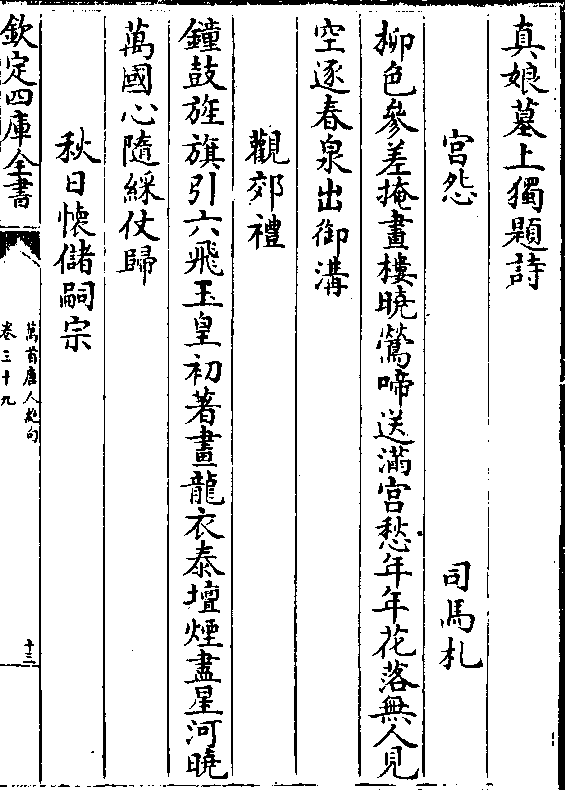 真娘墓上獨題詩
宮怨　司馬札
柳色參差掩畫樓曉鶯啼送滿宮愁年年花落無人見
空逐春泉出御溝
觀郊禮
鐘鼓旌旗引六飛玉皇初著畫龍衣泰壇煙盡星河曉
萬國心隨綵仗歸
秋日懷儲嗣宗
欽定四庫全書
萬首唐人絶句
卷三十九
十三